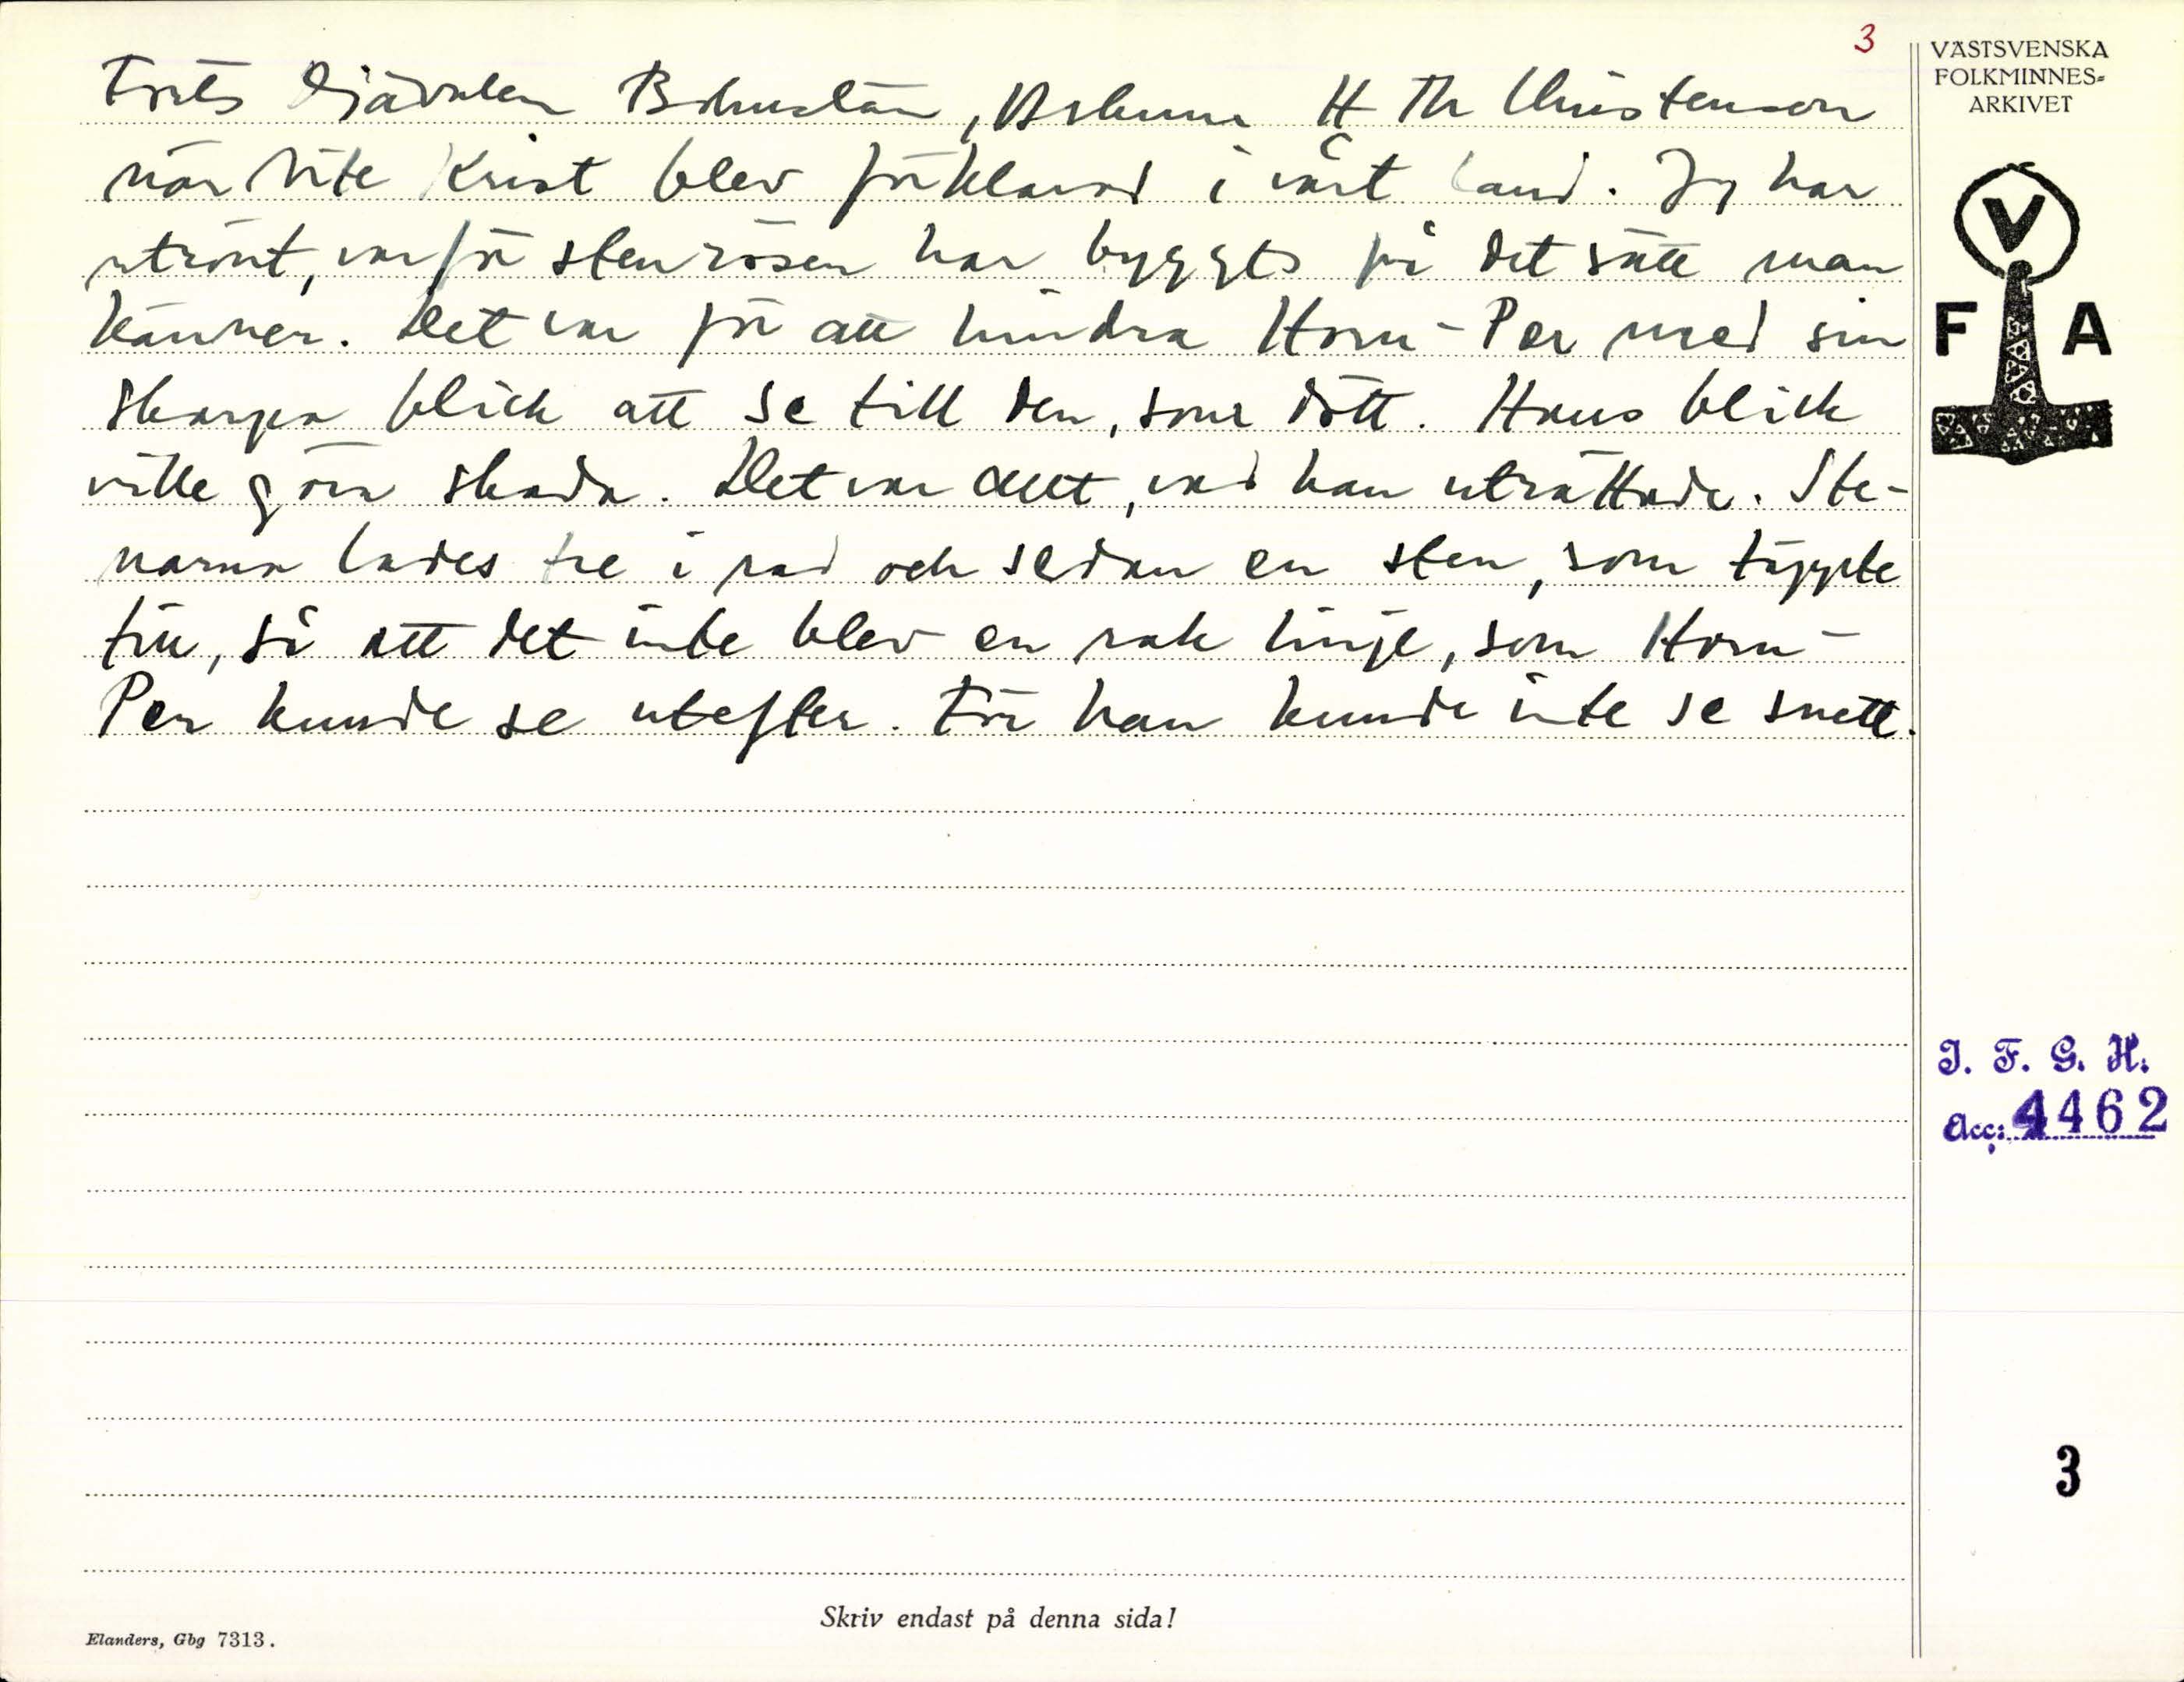 3
Forts Djävulen Bohuslän, Askum H Th Christenson
när Vite Krist blev förklarad i vårt land. Jag har
utrönt, varför stenrösen har byggts på det sätt man
känner. Det var för att hindra Horn-Per med sin
skarpa blick att se till den, som dött. Hans blick
ville göra skada. Det var allt, vad han uträttade. Ste-
narna lades tre i rad och sedan en sten, som täppte
till, så att det inte blev en rak linje, som Horn-
Per kunde se utefter. För han kunde inte se snett.
VÄSTSVENSKA
FOLKMINNES=
ARKIVET
V
F A
I. F. G. H.
Acc: 4462
3
Skriv endast på denna sida!
Elanders, Gbg 7313.